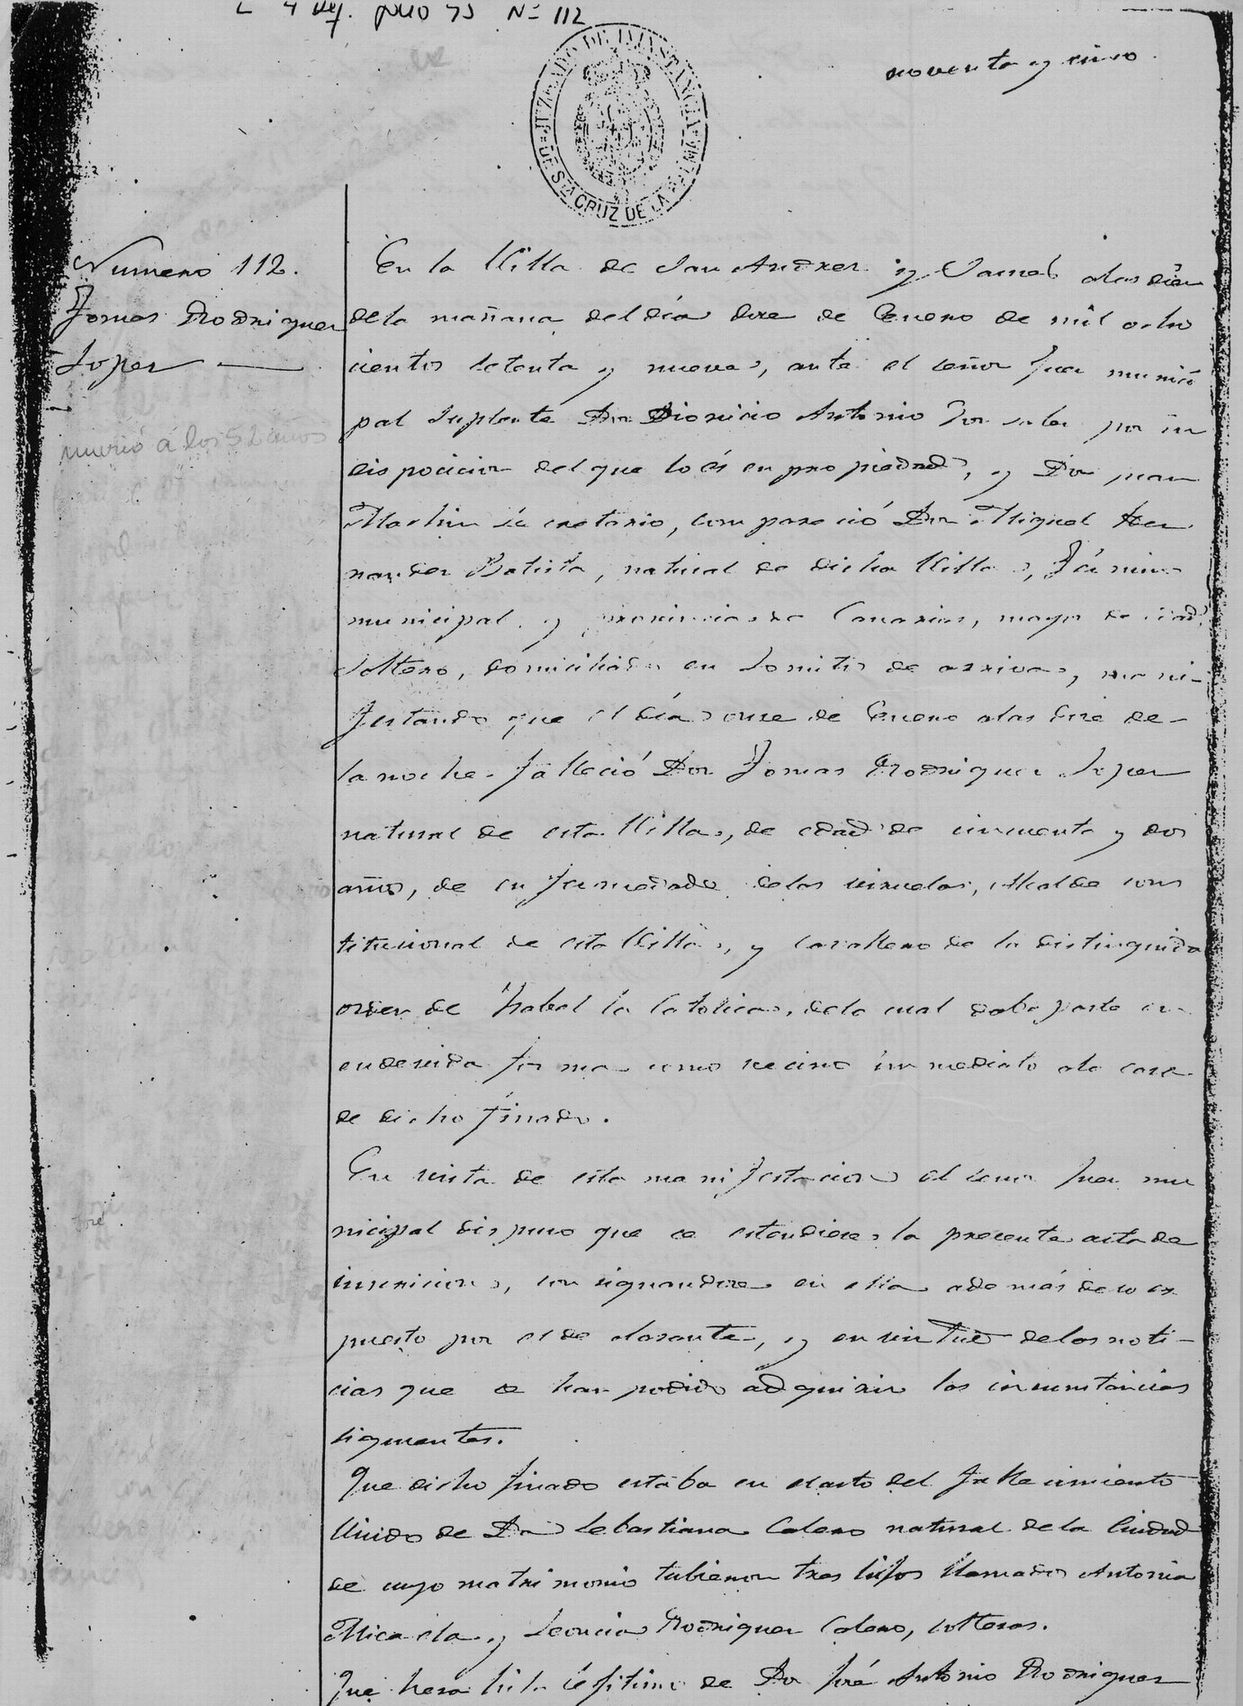 Nº 112
noventa y cinco
JUZGADO DE 1ª INSTANCIA
DE Sta CRUZ DE LA PALMA
Numero 112.
Tomas Rodriguez
Lopez
murió a los 52 años
En la Villa de San Andres y Sauces alas diez
dela mañana del día doce de Enero de mil ocho
cientos setenta y nueve, ante el señor Juez munici
pal Suplente Don Dionicio Antonio por in
disposicion del que lo és en propiedad, y Don Juan
Martin Secretario, compareció Don Miguel Her
nandez Batista, natural de dicha Villa, Término
municipal y provincia de Canarias, mayor de edad,
Soltero, domiciliado en Lomito de arriva, mani-
festando que el día once de Enero alas doce de-
la noche falleció Don Tomas Rodriguez Lopez
natural de esta Villa, de edad de cincuenta y dos
años, de enfermedad delas viruelas, Alcalde cons
titucional de esta Villa, y cavallero de la distinguida
orden de Isabel la Catolica, dela cual daba parte en
endevida forma como vecino inmediato ala casa
de dicho finado.
En vista de esta manifestacion el señor Juez mu
nicipal dispuso que se estendiese la precente acta de
inscricion, consignandose en ella ademas delo ex
puesto por el declarante, y en virtud delas noti-
cias que se han podido adquirir las circunstancias
siguientes.
Que dicho finado estaba en elacto del fallecimiento
Viudo de Da Sebastiana Calero natural de la Ciudad
de cuyo matrimonio tubieron tres hijos llamados Antonia
Micaela y Leoncia Rodriguez Calero, solteras.
Que hera hijo léjitimo de Dn José Antonio Rodriguez